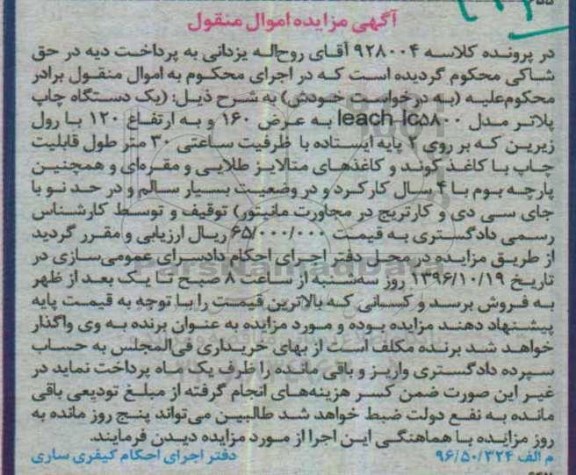 آگهی مزایده اموال منقول
در پرونده کلاسه ۹۲۸۰۰۴ آقای روح‌اله یزدانی به پرداخت دیه در حق
شاکی محکوم گردیده است که در اجرای محکوم به اموال منقول برادر
محکوم‌علیه (به درخواست خودش) به شرح ذیل: (یک دستگاه چاپ
پلاتر مدل leach lc۵۸۰۰ به عرض ۱۶۰ و به ارتفاع ۱۲۰ با رول
زیرین که بر روی ۲ پایه ایستاده با ظرفیت ساعتی ۳۰ متر طول قابلیت
چاپ با کاغذ کوتد و کاغذهای متالایز طلایی و مقره‌ای و همچنین
پارچه بوم با ۴ سال کارکرد و در وضعیت بسیار سالم و در حد نو با
جای سی دی و کارتریج در مجاورت مانیتور) توقیف و توسط کارشناس
رسمی دادگستری به قیمت ۶۵/۰۰۰/۰۰۰ ریال ارزیابی و مقرر گردید
از طریق مزایده در محل دفتر اجرای احکام دادسرای عمومی‌ساری در
تاریخ ۱۳۹۶/۱۰/۱۹ روز سه‌شنبه از ساعت ۸ صبح تا یک بعد از ظهر
به فروش برسد و کسانی که بالاترین قیمت را با توجه به قیمت پایه
پیشنهاد دهند مزایده بوده و مورد مزایده به عنوان برنده به وی واگذار
خواهد شد برنده مکلف است از بهای خریداری فی‌المجلس به حساب
سپرده دادگستری واریز و باقی مانده را ظرف یک ماه پرداخت نماید در
غیر این صورت ضمن کسر هزینه‌های انجام گرفته از مبلغ تودیعی باقی
مانده به نفع دولت ضبط خواهد شد طالبین می‌تواند پنج روز مانده به
روز مزایده با هماهنگی این اجرا از مورد مزایده دیدن فرمایند.
م الف ۹۶/۵۰/۳۲۴ دفتر اجرای احکام کیفری ساری